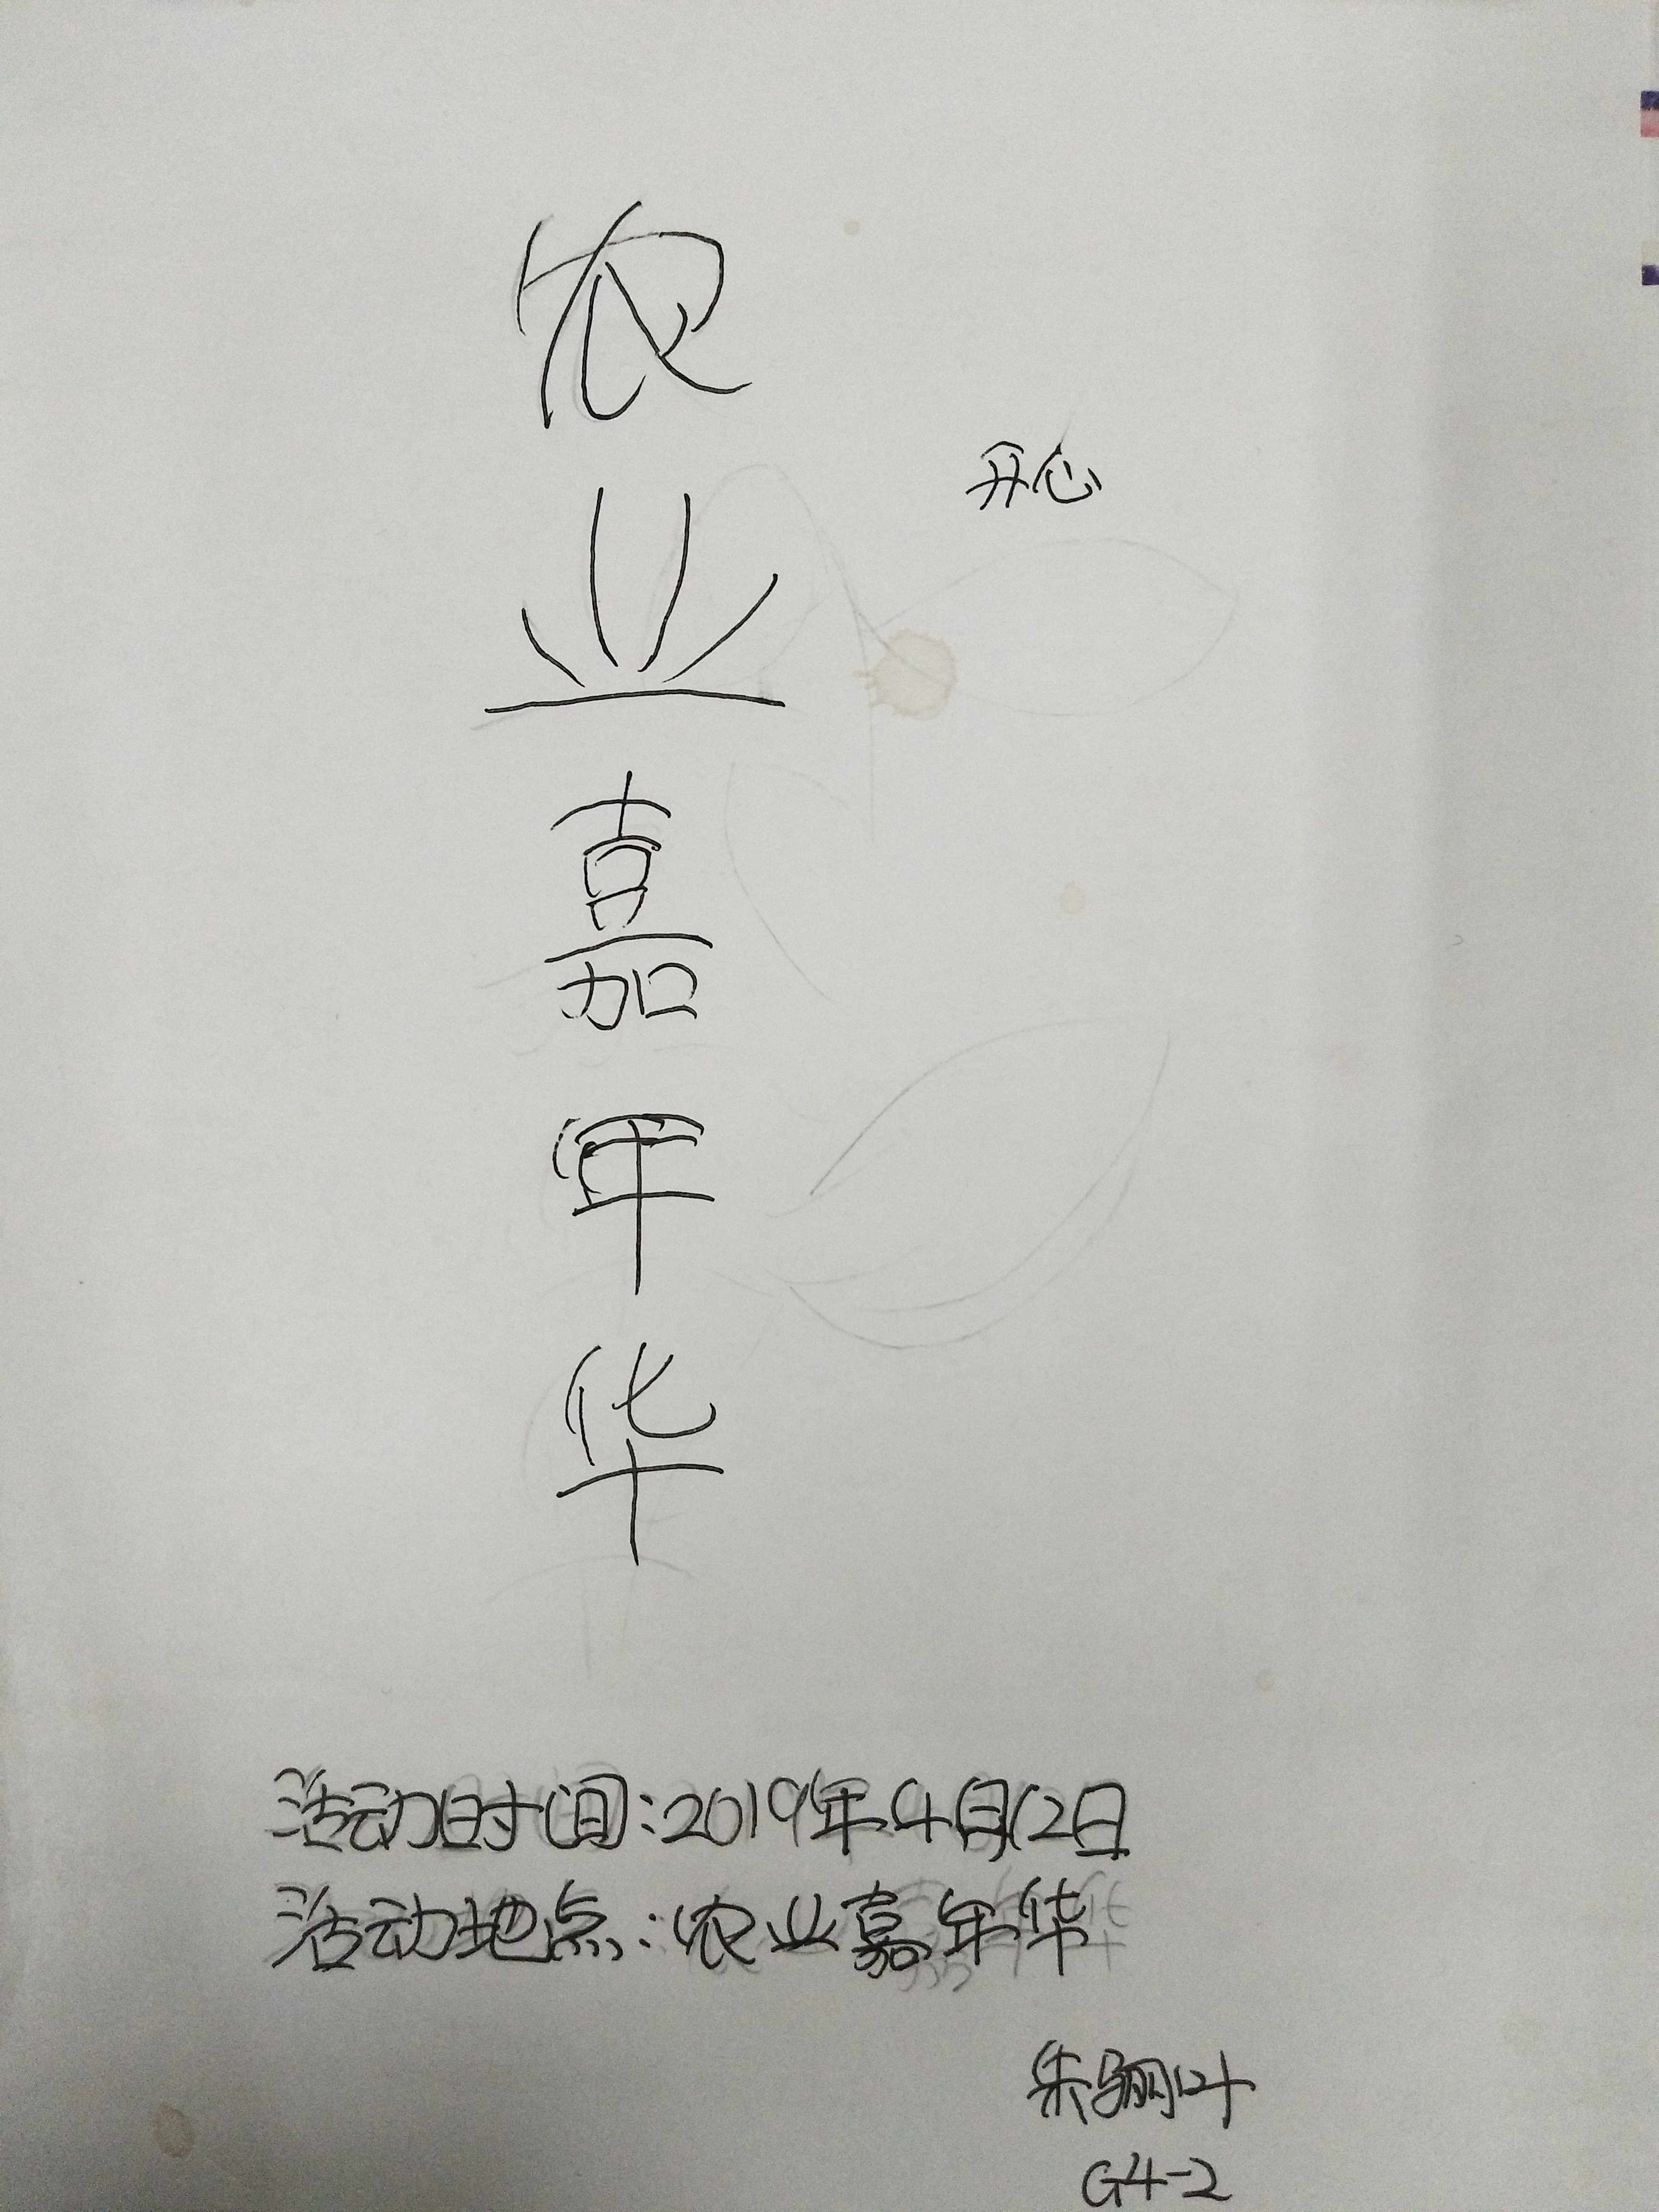 农业嘉年华
开心
活动时间:2019年4月12日
活动地点:农业嘉年华
朱骊叶
G4-2